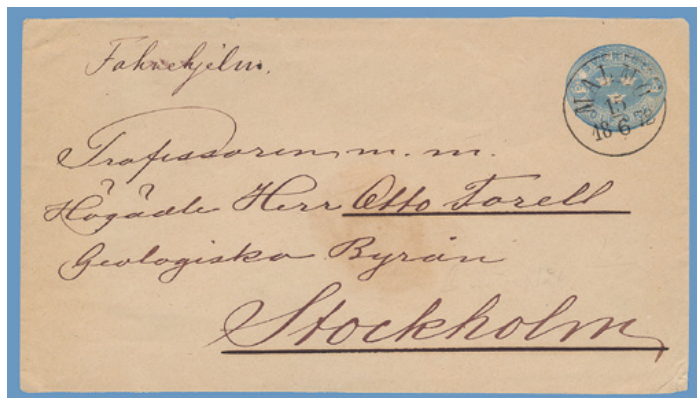 Fahnehjelm.
MALMÖ
15
18 6 72
Professoren m. m.
Högädle Herr Otto Torell
Geologiska Byrån
Stockholm